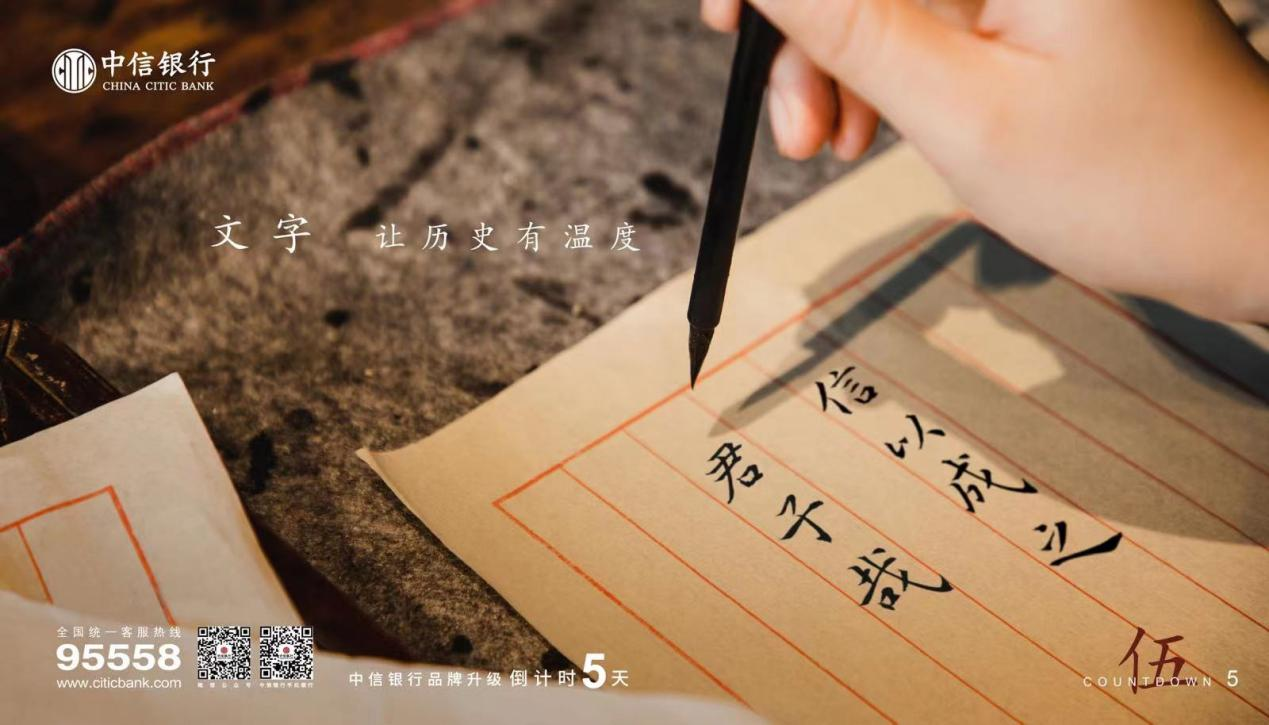 中信银行
CHINA CITIC BANK
文字 让历史有温度
信以成之
君子哉
全国统一客服热线
95558
www.citicbank.com
微信公众号
中信银行手机银行
中信银行品牌升级 倒计时5天
伍
COUNTDOWN 5